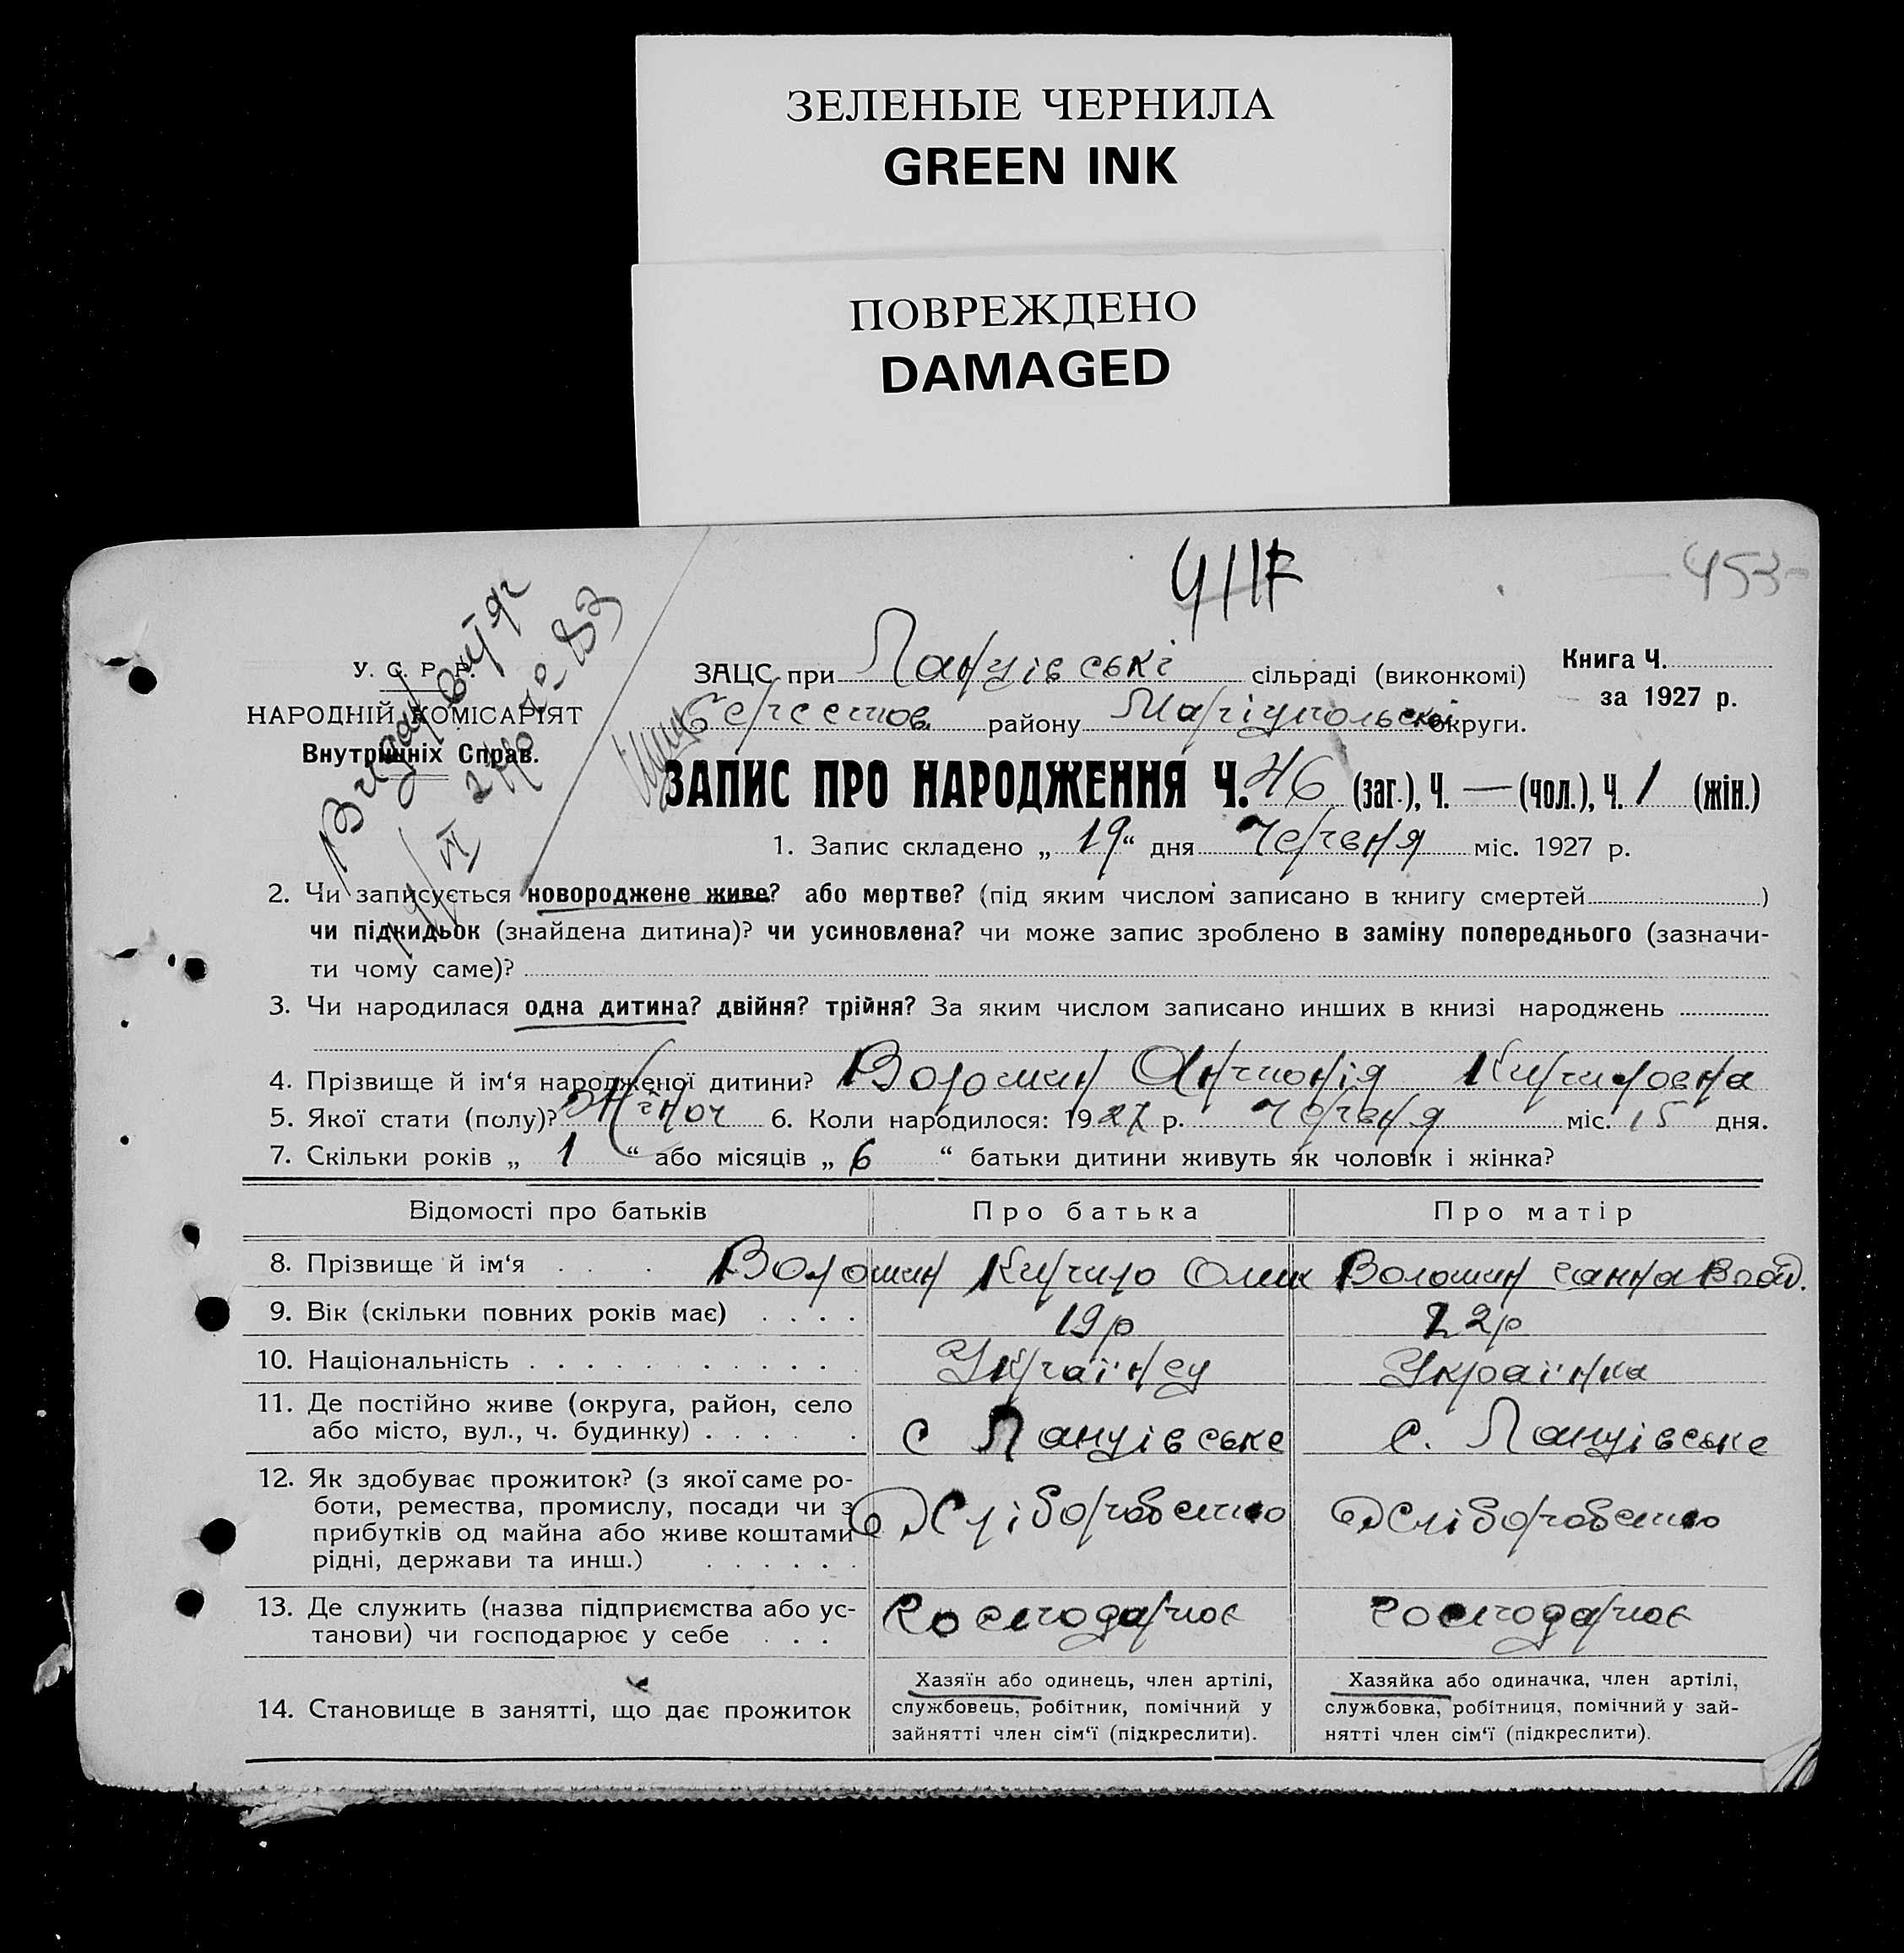 ЗЕЛЕНЫЕ ЧЕРНИЛА
GREEN INK
ПОВРЕЖДЕНО
DAMAGED
453
У. С. Р. Р.
НАРОДНІЙ КОМІСАРІЯТ
Внутрішніх Справ.
ЗАЦС при Ланцівські сільраді (виконкомі)
району Маріупольської округи.
Книга Ч.
за 1927 р.
ЗАПИС ПРО НАРОДЖЕННЯ Ч. 46 (заг.), Ч. — (чол.), Ч. 1 (жін.)
1. Запис складено „ 19 “ дня червня міс. 1927 р.
2. Чи записується новороджене живе? або мертве? (під яким числом записано в книгу смертей )
чи підкидьок (знайдена дитина)? чи усиновлена? чи може запис зроблено в заміну попереднього (зазначи-
ти чому саме)?
3. Чи народилася одна дитина? двійня? трійня? За яким числом записано инших в книзі народжень
4. Прізвище й ім‘я народженої дитини? Волошин Антонія Кириловна
5. Якої стати (полу)? жіноч 6. Коли народилося: 1927 р. червня міс. 15 дня.
7. Скільки років „ 1 “ або місяців „ 6 “ батьки дитини живуть як чоловік і жінка?
Відомості про батьків Про батька Про матір
8. Прізвище й ім‘я . . . Волошин Кирило Олик Волошин Ганна
9. Вік (скільки повних років має) . . . . 19 р 22 р
10. Національність . . . . . . . . . . . Українец Українка
11. Де постійно живе (округа, район, село
або місто, вул., ч. будинку) . . . . . с Ланцівське с. Ланцівське
12. Як здобуває прожиток? (з якої саме ро-
боти, ремества, промислу, посади чи з
прибутків од майна або живе коштами
рідні, держави та инш.) . . . . . . Хліборобство Хліборобство
13. Де служить (назва підприємства або ус-
танови) чи господарює у себе . . . господарює господарює
14. Становище в занятті, що дає прожиток
Хазяїн або одинець, член артілі,
службовець, робітник, помічний у
зайнятті член сім‘ї (підкреслити).
Хазяйка або одиначка, член артілі,
службовка, робітниця, помічний у зай-
нятті член сім‘ї (підкреслити).